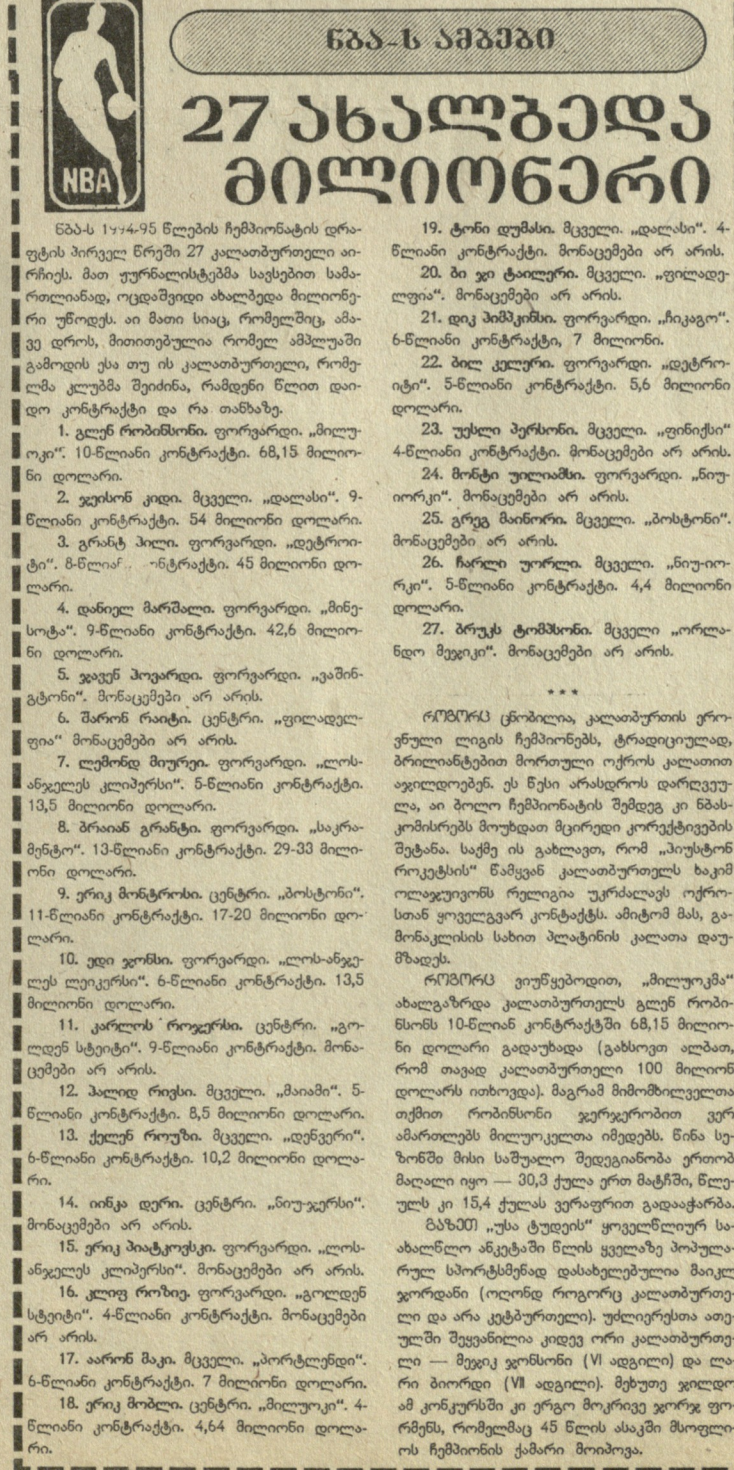 ნბა-ს ამბები
27 ახალბედა
მილიონერი
NBA
ნბა-ს 1994-95 წლების ჩემპიონატის დრა-
ფტის პირველ წრეში 27 კალათბურთელი აი-
რჩიეს. მათ ჟურნალისტებმა სავსებით სამა-
რთლიანად, ოცდაშვიდი ახალბედა მილიონე-
რი უწოდეს. აი მათი სიაც, რომელშიც, ამა-
ვე დროს, მითითებულია რომელ ამპლუაში
გამოდის ესა თუ ის კალათბურთელი, რომე-
ლმა კლუბმა შეიძინა, რამდენი წლით დაი-
დო კონტრაქტი და რა თანხაზე.
1. გლენ რობინსონი. ფორვარდი. „მილუ-
ოკი“. 10-წლიანი კონტრაქტი. 68,15 მილიო-
ნი დოლარი.
2. ჯეისონ კიდი. მცველი. „დალასი“. 9-
წლიანი კონტრაქტი. 54 მილიონი დოლარი.
3. გრანტ ჰილი. ფორვარდი. „დეტროი-
ტი“. 8-წლიან ნტრაქტი. 45 მილიონი დო-
ლარი.
4. დანიელ მარშალი. ფორვარდი. „მინე-
სოტა“. 9-წლიანი კონტრაქტი. 42,6 მილიო-
ნი დოლარი.
5. ჯავენ ჰოვარდი. ფორვარდი. „ვაშინ-
გტონი“. მონაცემები არ არის.
6. შარონ რაიტი. ცენტრი. „ფილადელ-
ფია“ მონაცემები არ არის.
7. ლემონდ მიურეი. ფორვარდი. „ლოს-
ანჯელეს კლიპერსი“. 5-წლიანი კონტრაქტი.
13,5 მილიონი დოლარი.
8. ბრაიან გრანტი. ფორვარდი. „საკრა-
მენტო“. 13-წლიანი კონტრაქტი. 29-33 მილი-
ონი დოლარი.
9. ერიკ მონტროსი. ცენტრი. „ბოსტონი“.
11-წლიანი კონტრაქტი. 17-20 მილიონი დო-
ლარი.
10. ედი ჯონსი. ფორვარდი. „ლოს-ანჯე-
ლეს ლეიკერსი“. 6-წლიანი კონტრაქტი. 13,5
მილიონი დოლარი.
11. კარლოს როჯერსი. ცენტრი. „გო-
ლდენ სტეიტი“. 9-წლიანი კონტრაქტი. მონა-
ცემები არ არის.
12. ჰალიდ რივსი. მცველი. „მაიამი“. 5-
წლიანი კონტრაქტი. 8,5 მილიონი დოლარი.
13. ქელენ როუზი. მცველი. „დენვერი“.
6-წლიანი კონტრაქტი. 10,2 მილიონი დოლა-
რი.
14. იინკა დერი. ცენტრი. „ნიუ-ჯერსი“.
მონაცემები არ არის.
15. ერიკ პიატკოვსკი. ფორვარდი. „ლოს-
ანჯელეს კლიპერსი“. მონაცემები არ არის.
16. კლიფ როზიე. ფორვარდი. „გოლდენ
სტეიტი“. 4-წლიანი კონტრაქტი. მონაცემები
არ არის.
17. აარონ მაკი. მცველი. „პორტლენდი“.
6-წლიანი კონტრაქტი. 7 მილიონი დოლარი.
18. ერიკ მობლი. ცენტრი. „მილუოკი“. 4-
წლიანი კონტრაქტი. 4,64 მილიონი დოლა-
რი.
19. ტონი დუმასი. მცველი. „დალასი“. 4-
წლიანი კონტრაქტი. მონაცემები არ არის.
20. ბი ჯი ტაილერი. მცველი. „ფილადე-
ლფია“. მონაცემები არ არის.
21. დიკ პიმპკინსი. ფორვარდი. „ჩიკაგო“.
6-წლიანი კონტრაქტი, 7 მილიონი.
22. ბილ კელერი. ფორვარდი. „დეტრო-
იტი“. 5-წლიანი კონტრაქტი. 5,6 მილიონი
დოლარი.
23. უესლი პერსონი. მცველი. „ფინიქსი“
4-წლიანი კონტრაქტი. მონაცემები არ არის.
24. მონტი უილიამსი. ფორვარდი. „ნიუ-
იორკი“. მონაცემები არ არის.
25. გრეგ მაინორი. მცველი. „ბოსტონი“.
მონაცემები არ არის.
26. ჩარლი უორლი. მცველი. „ნიუ-იო-
რკი“. 5-წლიანი კონტრაქტი. 4,4 მილიონი
დოლარი.
27. ბრუკს ტომპსონი. მცველი „ორლა-
ნდო მეჯიკი“. მონაცემები არ არის.
***
როგორც ცნობილია, კალათბურთის ერო-
ვნული ლიგის ჩემპიონებს, ტრადიციულად,
ბრილიანტებით მორთული ოქროს კალათით
აჯილდოებენ. ეს წესი არასდროს დარღვეუ-
ლა, აი ბოლო ჩემპიონატის შემდეგ კი ნბას-
კომისრებს მოუხდათ მცირედი კორექტივების
შეტანა. საქმე ის გახლავთ, რომ „ჰიუსტონ
როკეტსის“ წამყვან კალათბურთელს ხაკიმ
ოლაჯუივონს რელიგია უკრძალავს ოქრო-
სთან ყოველგვარ კონტაქტს. ამიტომ მას, გა-
მონაკლისის სახით პლატინის კალათა დაუ-
მზადეს.
როგორც ვიუწყებოდით, „მილუოკმა“
ახალგაზრდა კალათბურთელს გლენ რობი-
ნსონს 10-წლიან კონტრაქტში 68,15 მილიო-
ნი დოლარი გადაუხადა (გახსოვთ ალბათ,
რომ თავად კალათბურთელი 100 მილიონ
დოლარს ითხოვდა). მაგრამ მიმომხილველთა
თქმით რობინსონი ჯერჯერობით ვერ
ამართლებს მილუოკელთა იმედებს. წინა სე-
ზონში მისი საშუალო შედეგიანობა ერთობ
მაღალი იყო — 30,3 ქულა ერთ მატჩში, წლე-
ულს კი 15,4 ქულას ვერაფრით გადააჭარბა.
გაზეთ „უსა ტუდეის“ ყოველწლიურ სა-
ახალწლო ანკეტაში წლის ყველაზე პოპულა-
რულ სპორტსმენად დასახელებულია მაიკლ
ჯორდანი (ოღონდ როგორც კალათბურთე-
ლი და არა კეტბურთელი). უძლიერესთა ათე-
ულში შეყვანილია კიდევ ორი კალათბურთე-
ლი — მეჯიკ ჯონსონი (VI ადგილი) და ლა-
რი ბიორდი (VII ადგილი). მეხუთე ჯილდო
ამ კონკურსში კი ერგო მოკრივე ჯორჯ ფო-
რმენს, რომელმაც 45 წლის ასაკში მსოფლი-
ოს ჩემპიონის ქამარი მოიპოვა.